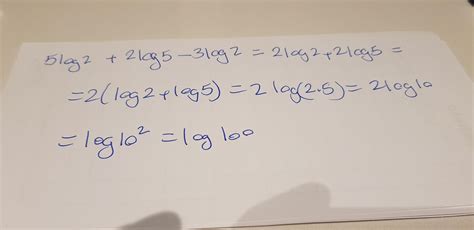 5log2 + 2log5 - 3log2 = 2log2 + 2log5 =
= 2(log2 + log5) = 2 log(2·5) = 2log10
= log10² = log 100